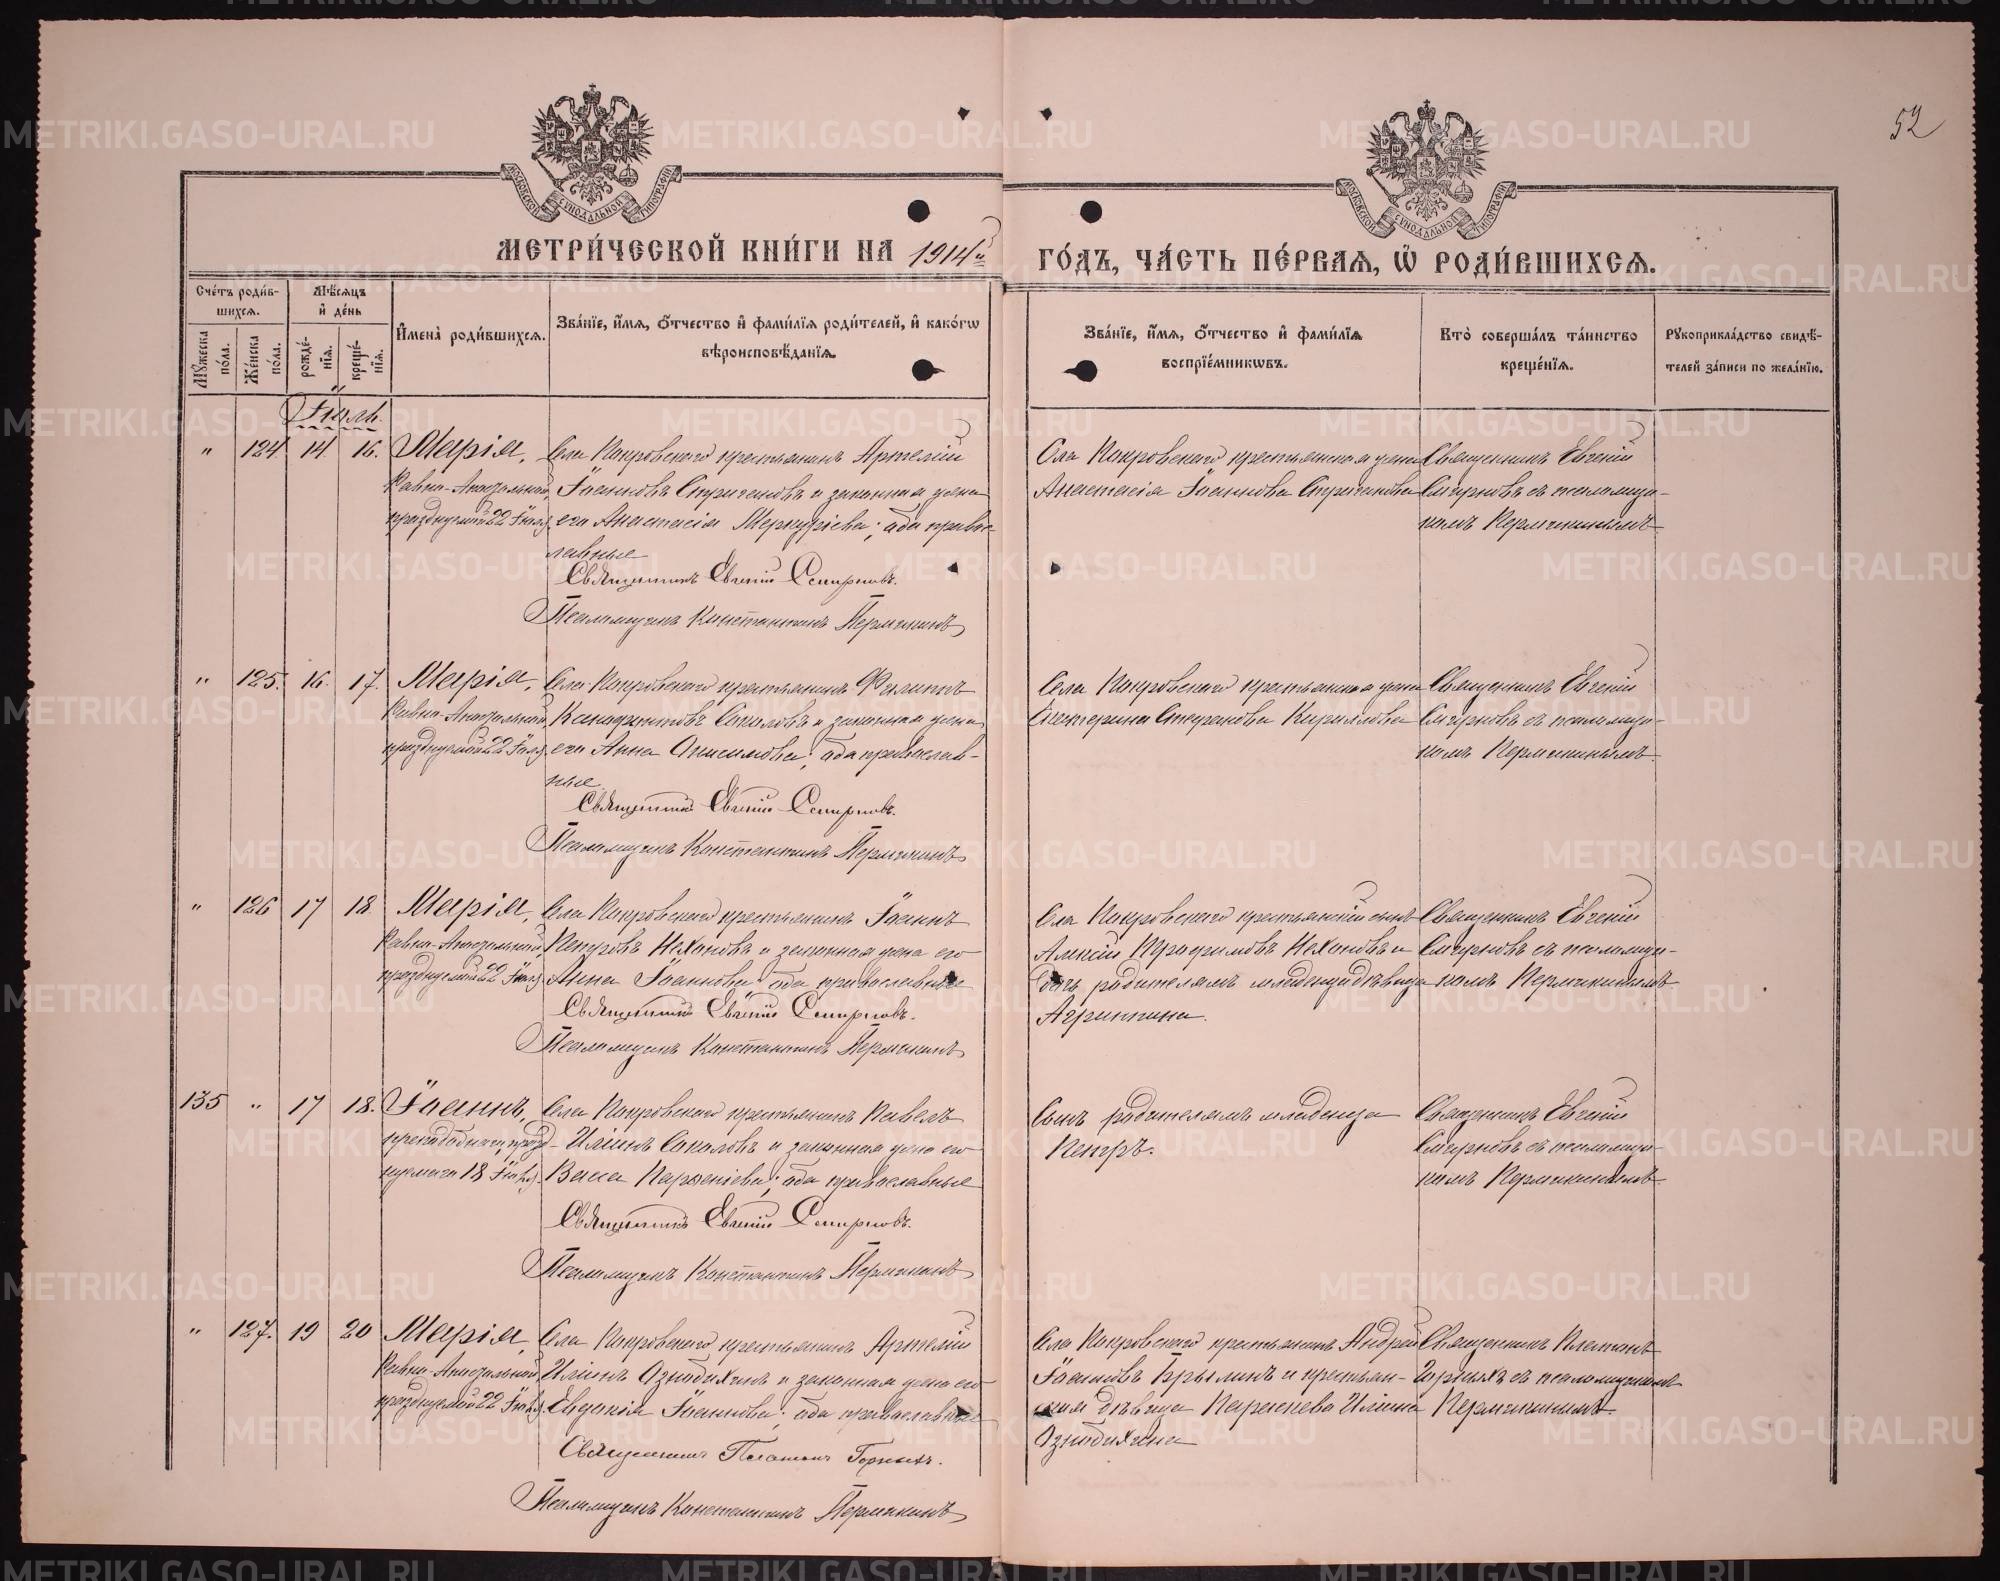 52
МОСКОВСКОЙ СѴНОДАЛЬНОЙ ТИПОГРАФІИ
МОСКОВСКОЙ СѴНОДАЛЬНОЙ ТИПОГРАФІИ
МЕТРИ́ЧЕСКОЙ КНИ́ГИ НА 1914й ГО́ДЪ, ЧА́СТЬ ПЕ́РВАЯ, Ѡ҆ РОДИ́ВШИХСЯ.
Сче́тъ роди́вшихся.
Мꙋ́жеска по́ла.
Же́нска по́ла.
Мѣ́сяцъ и҆ де́нь
рожде́нїя.
креще́нїя.
И҆мена̀ роди́вшихся.
Зва́нїе, и҆́мя, ѻ҆́тчество и҆ фами́лїя роди́телей, и҆ како́гѡ вѣроисповѣ́данїя.
Зва́нїе, и҆́мя, ѻ҆́тчество и҆ фами́лїя воспрїе́мникѡвъ.
Кто̀ соверша́лъ та́инство креще́нїя.
Рꙋкоприкла́дство свидѣ́телей за́писи по жела́нїю.
Іюль.
" 124 14 16. Марія,
Равно-Апостольной,
празднуемой 22 Іюля
Села Покровского крестьянинъ Артемій
Іоанновъ Стригановъ и законная жена
его Анастасія Меркуріева; оба право-
славные
Священникъ Евгеній Смирновъ.
Псаломщикъ Константинъ Пермикинъ
Села Покровского крестьянская жена
Анастасія Іоаннова Стриганова
Священникъ Евгеній
Смирновъ съ псаломщи-
комъ Пермикинымъ
" 125. 16. 17. Марія,
Равно-Апостольной
празднуемой 22 Іюля
Села Покровского крестьянинъ Филиппъ
Соколовъ и законная жена
его Анна Онисимова; оба православ-
ные
Священникъ Евгеній Смирновъ.
Псаломщикъ Константинъ Пермикинъ
Села Покровского крестьянская жена
Екатерина Стефанова Кириллова
Священникъ Евгеній
Смирновъ съ псаломщи-
комъ Пермикинымъ
" 126 17 18 Марія,
Равно-Апостольной,
празднуемой 22 Іюля
Села Покровского крестьянинъ Іоаннъ
Петровъ Нехоновъ и законная жена его
Анна Іоаннова; оба православные
Священникъ Евгеній Смирновъ.
Псаломщикъ Константинъ Пермикинъ
Села Покровского крестьянскій сынъ
Алексій Нехоновъ и
дочь родителямъ младенца дѣвица
Агриппина.
Священникъ Евгеній
Смирновъ съ псаломщи-
комъ Пермикинымъ
135 " 17 18. Іоаннъ,
преподобнаго, празд-
нуемаго 18 Іюля
Села Покровского крестьянинъ Павелъ
Иліинъ Соколовъ и законная жена его
Васса Парѳеніева; оба православные
Священникъ Евгеній Смирновъ.
Псаломщикъ Константинъ Пермикинъ
Сынъ родителямъ младенца
Петръ.
Священникъ Евгеній
Смирновъ съ псаломщи-
комъ Пермикинымъ
" 127. 19 20 Марія,
Равно-Апостольной
празднуемой 22 Іюля
Села Покровского крестьянинъ Артемій
Иліинъ Ознобихинъ и законная жена его
Евдокія Іоаннова; оба православные
Священникъ Платонъ Горныхъ.
Псаломщикъ Константинъ Пермикинъ
Села Покровского крестьянинъ Андрей
Іоанновъ Брылинъ и крестьян-
ская дѣвица Иліина
Ознобихина
Священникъ Платонъ
Горныхъ съ псаломщикомъ
Пермикинымъ
METRIKI.GASO-URAL.RU